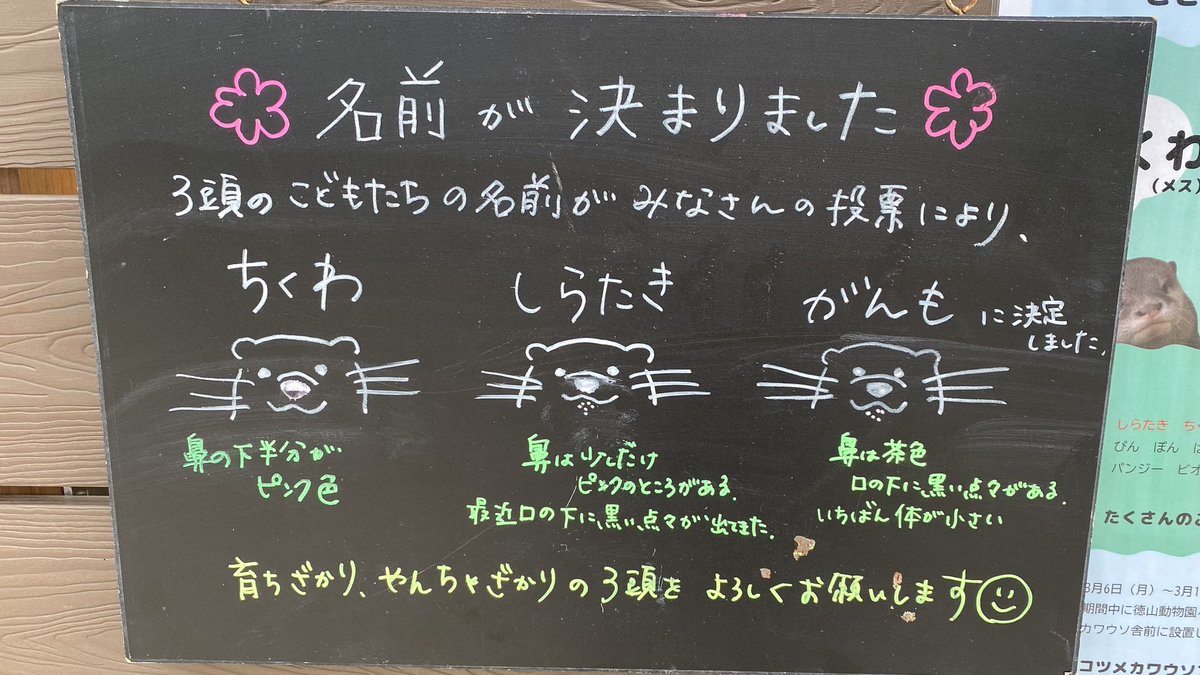 名前が決まりました
3頭のこどもたちの名前がみなさんの投票により、
ちくわ
しらたき
がんも
に決定
しました。
鼻の下半分が
ピンク色
鼻は少しだけ
ピンクのところがある。
最近口の下に黒い点々が出てきた。
鼻は茶色
口の下に黒い点々がある。
いちばん体が小さい
育ちざかり、やんちゃざかりの3頭をよろしくお願いします
くわ
(メス)
しらたき ち
ぴん ぽん
パンジー ビオ
たくさんのお
3月6日（月）～3月1
期間中に徳山動物園
カワウソ舎前に設置し
コツメカワウソ